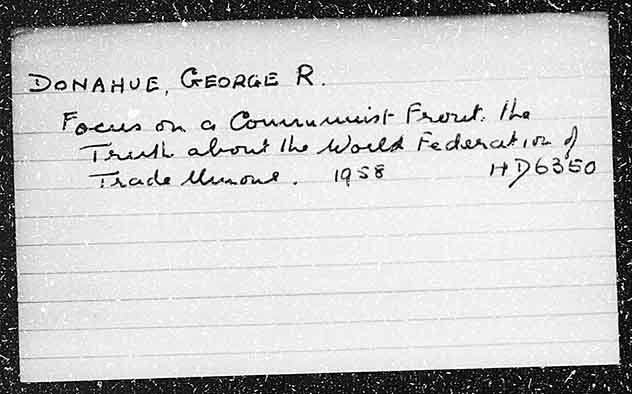 DONAHUE, GEORGE R.
Focus on a Communist Front. The
Truth about the World Federation of
Trade Unions. 1958 HD6350